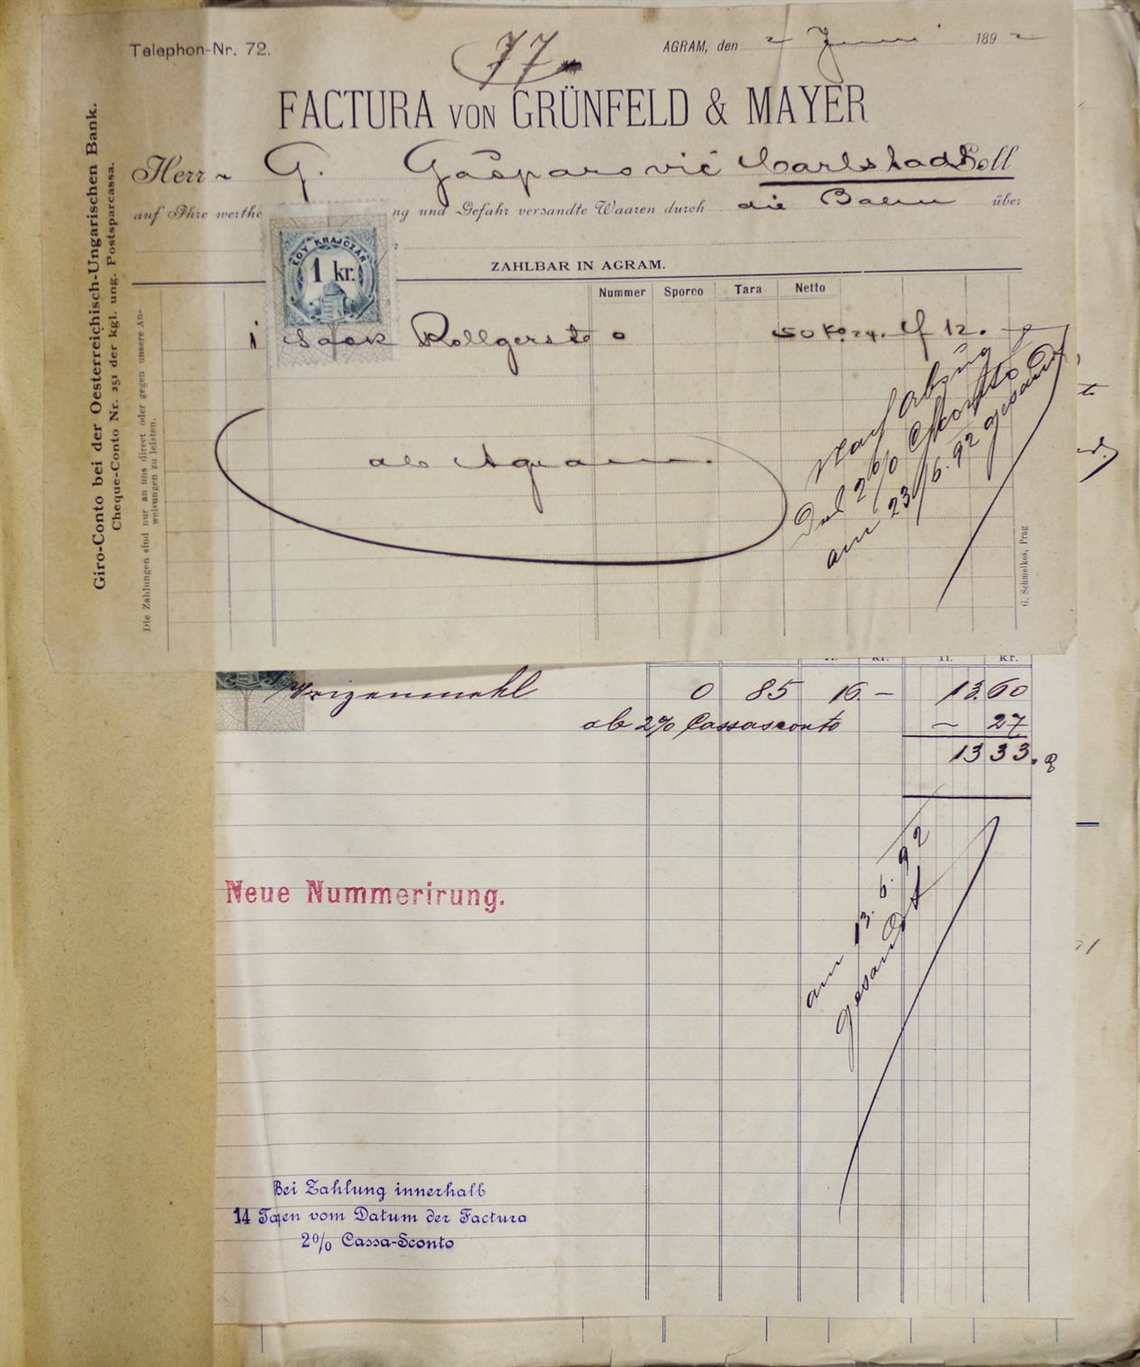 Telephon-Nr. 72.
77
AGRAM, den 2 Juni 1892
FACTURA VON GRÜNFELD & MAYER
Herrn G. Gašparović Carlstadt Soll
auf Ihre werthe ng und Gefahr versandte Waaren durch die Bahn über
ZAHLBAR IN AGRAM.
Nummer Sporco Tara Netto
EGY KRAJCZÁR
1 kr.
1 Sack Rollgerste 0 50 Ko. f 12.
ab Agram.
nach Abzug
2% Sconto
am 23/6.92 gesandt
Giro-Conto bei der Oesterreichisch-Ungarischen Bank.
Cheque-Conto Nr. 251 der kgl. ung. Postsparcassa.
Die Zahlungen sind nur an uns direct oder gegen unsere An-
weisungen zu leisten.
G. Schmelkes, Prag
fl. kr. fl. kr.
Weizenmehl 0 85 16 – 13.60
ab 2% Cassasconto – 27
1333.
am 13.6.92
gesandt
Neue Nummerirung.
Bei Zahlung innerhalb
14 Tagen vom Datum der Factura
2% Cassa-Sconto